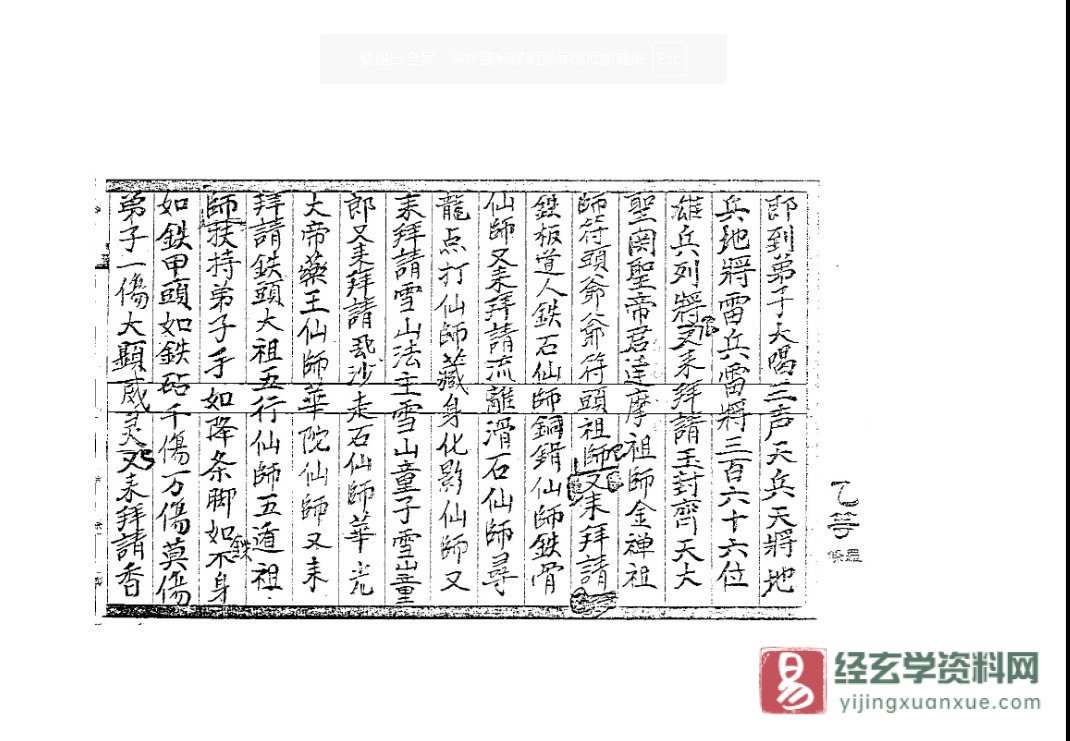 即到弟子大喝三声天兵天將地
兵地將雷兵雷將三百六十六位
雄兵列將又来拜請玉封齊天大
聖関聖帝君達摩祖師金禅祖
師符頭爺爺符頭祖師又来拜請
鉄板道人鉄石仙師銅錯仙師鉄骨
仙師又来拜請流離滑石仙師尋
龍点打仙師藏身化影仙師又
来拜請雪山法主雪山童子雪山童
郎又来拜請飛沙走石仙師華光
大帝藥王仙師華陀仙師又来
拜請鉄頭大祖五行仙師五遁祖
師扶持弟子手如降条脚如不身
鉄
如鉄甲頭如鉄砧千傷万傷莫傷
弟子一傷大顯威灵又来拜請香
乙等
易
经玄学资料网
yijingxuanxue.com